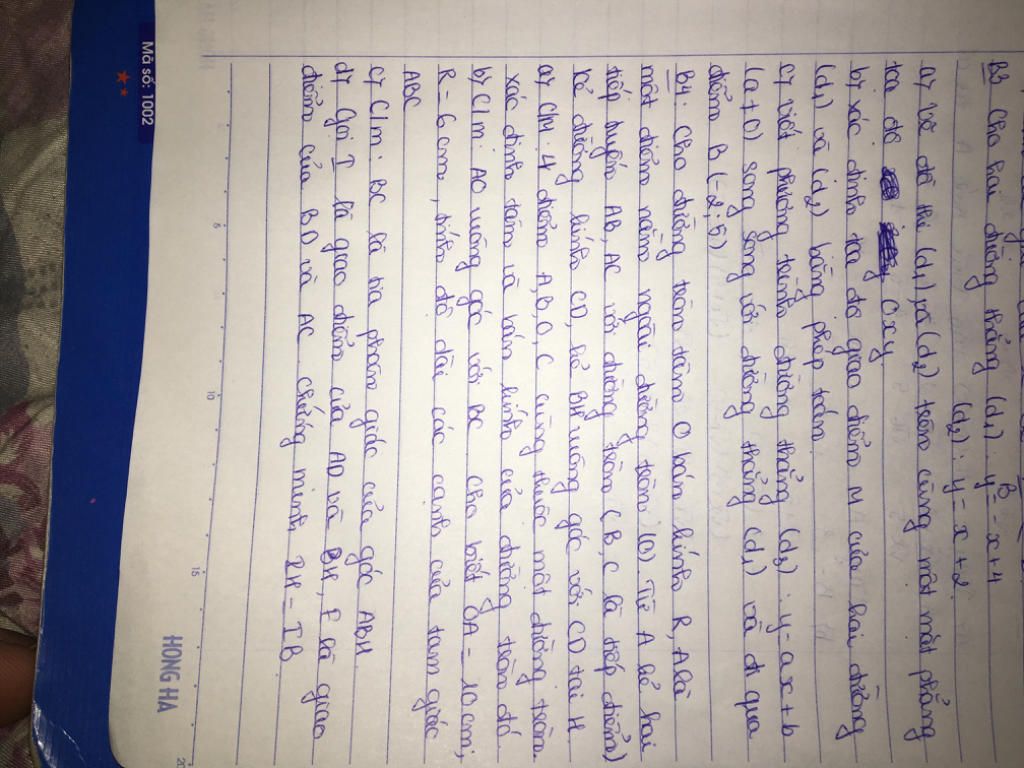 B3 Cho hai đường thẳng (d₁): y = -x+4
(d₂): y = x+2
a) Vẽ đồ thị (d₁) và (d₂) trên cùng một mặt phẳng
tọa độ Oxy
b) xác định tọa độ giao điểm M của hai đường
(d₁) và (d₂) bằng phép toán
c) viết phương trình đường thẳng (d₃): y = ax+b
(a≠0) song song với đường thẳng (d₁) và đi qua
điểm B (-2;5)
B4. Cho đường tròn tâm O bán kính R, A là
một điểm nằm ngoài đường tròn (O). Từ A kẻ hai
tiếp tuyến AB, AC với đường tròn (B, C là tiếp điểm)
kẻ đường kính CD, kẻ BH vuông góc với CD tại H
a) C/M: 4 điểm A, B, O, C cùng thuộc một đường tròn
xác định tâm và bán kính của đường tròn đó.
b) C/m: AO vuông góc với BC cho biết OA = 10cm;
R = 6cm, tính độ dài các cạnh của tam giác
ABC
c) C/m: BC là tia phân giác của góc ABH
d) Gọi I là giao điểm của AD và BH, E là giao
điểm của BD và AC chứng minh IH = IB
Mã số: 102
5
10
15
20
HONG HA